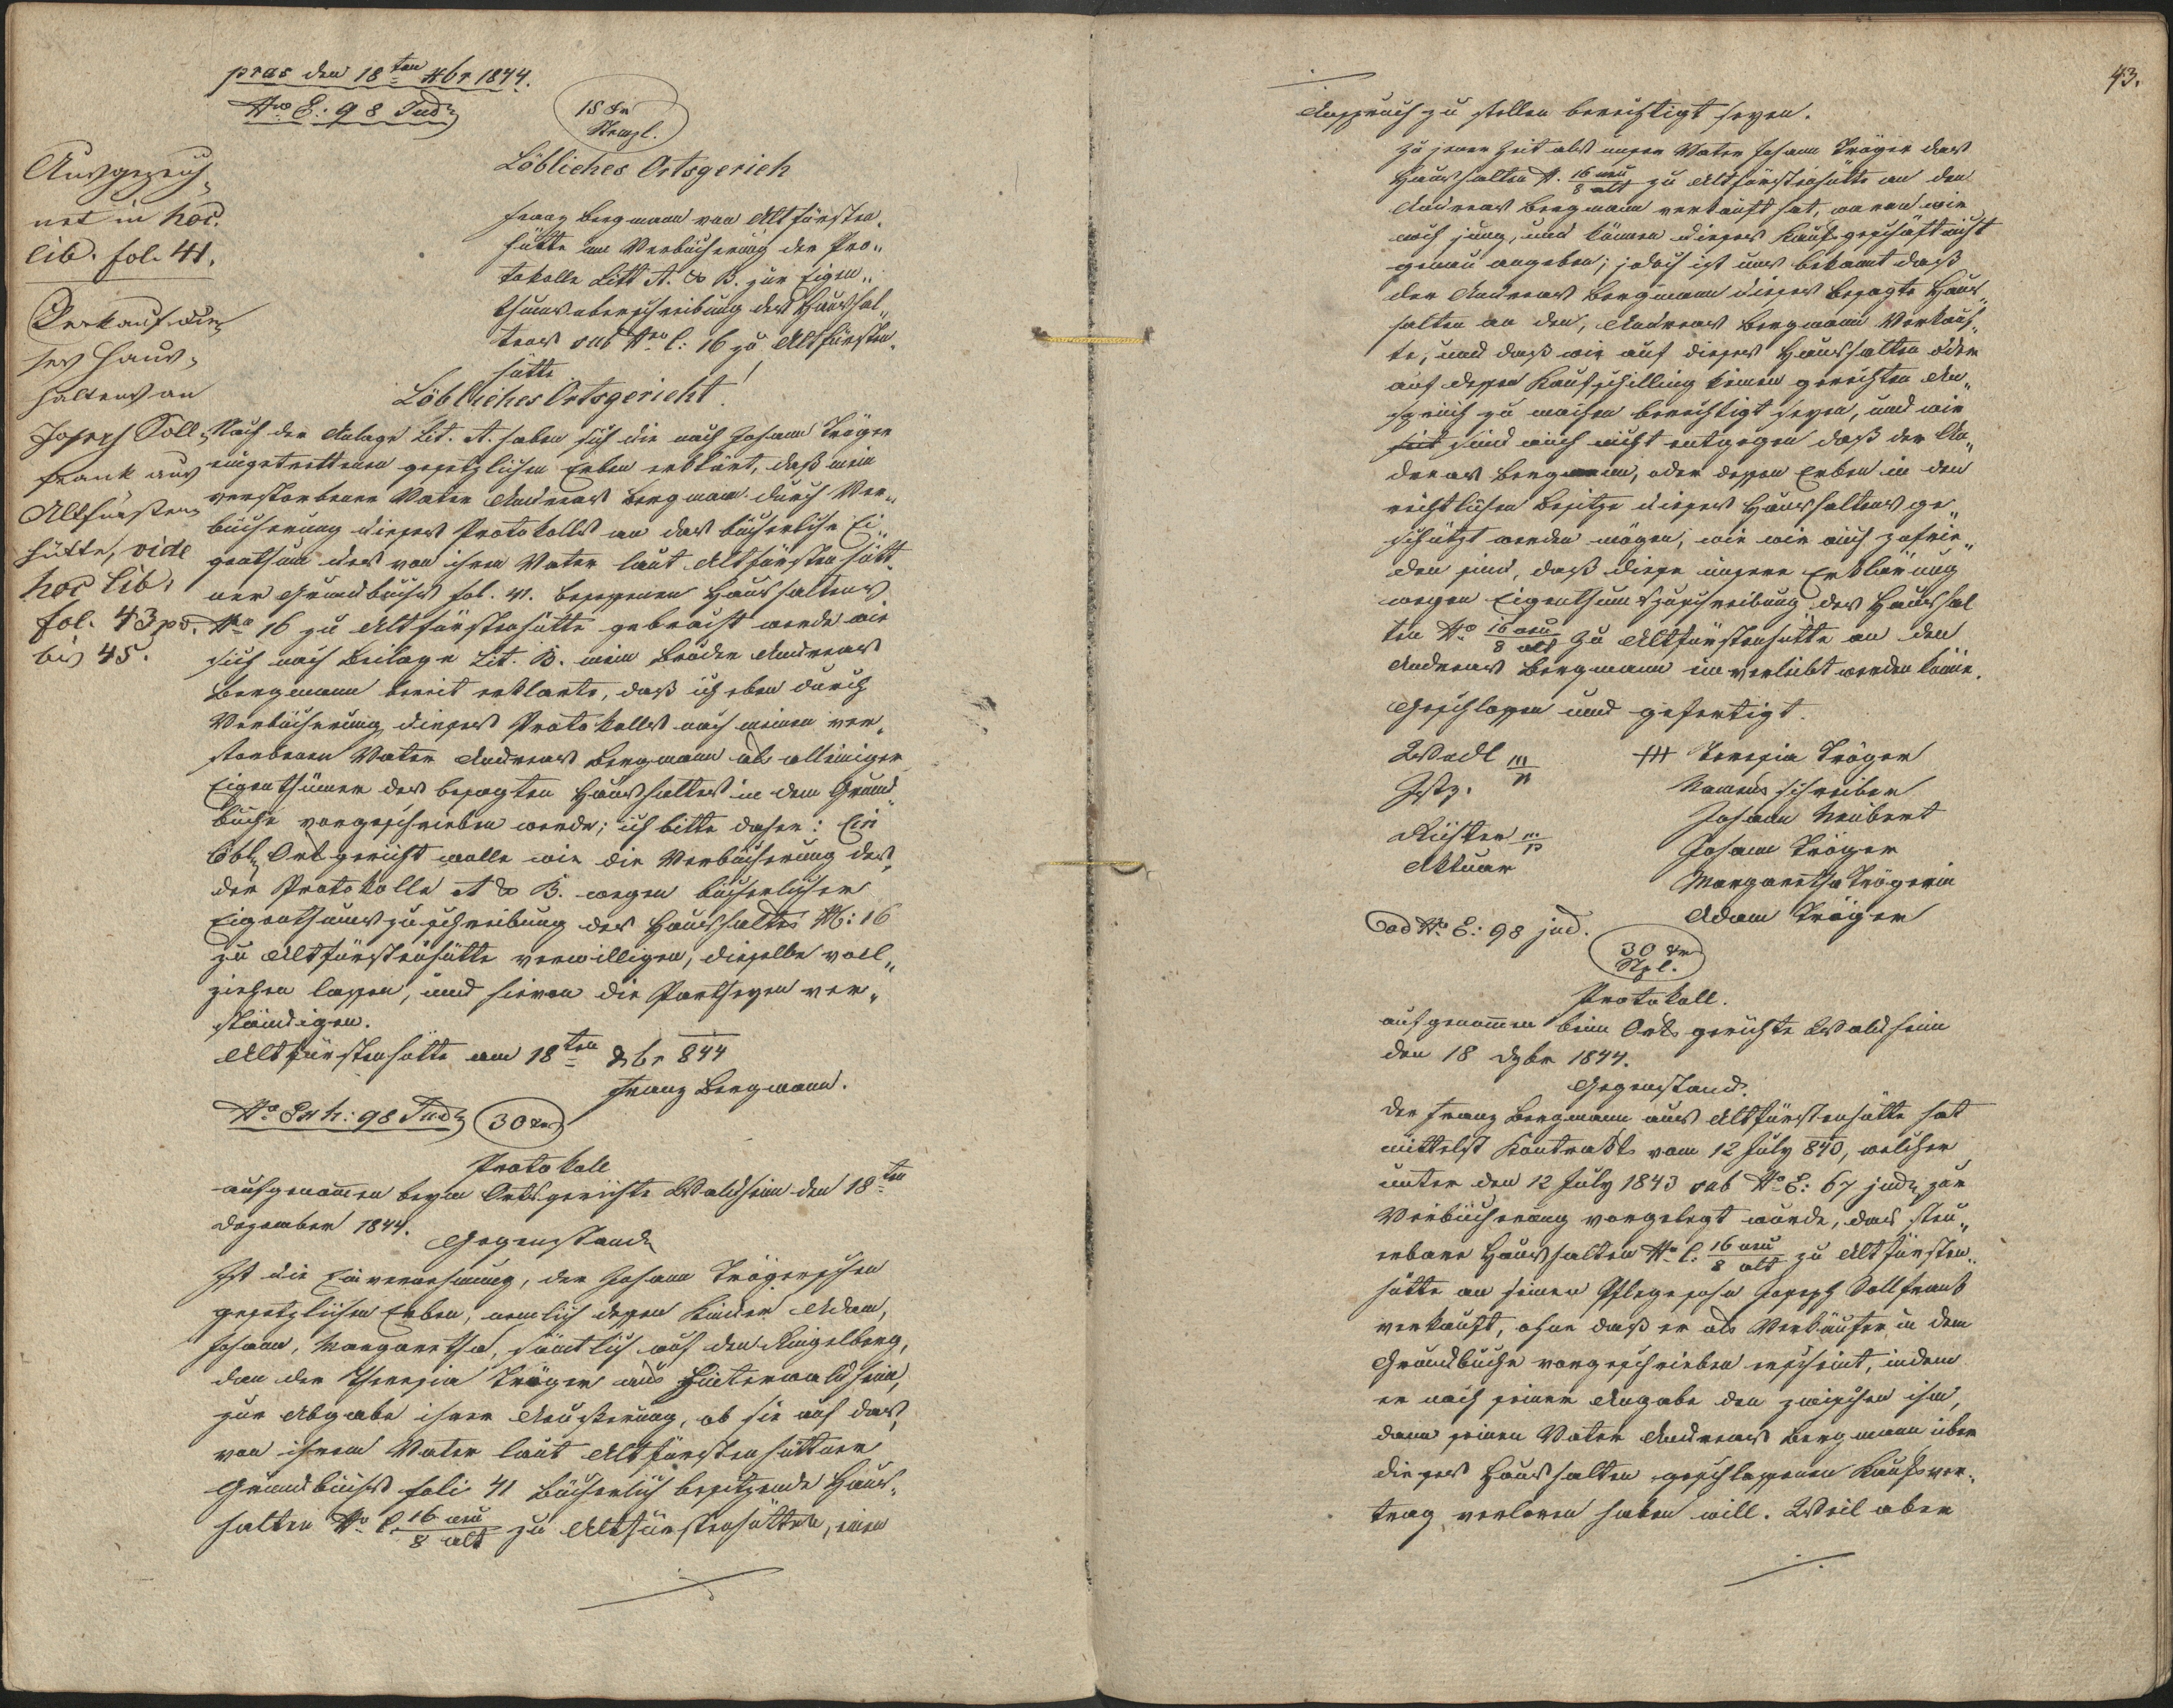 pras den 18ten Xbr 1844.
Nro E: 98 Jud.
15 Kr
Stempl.
Löbliches Ortsgerich
Franz Bergmann von Altfürsten-
hütte um Verbücherung der Pro-
tokolle Litt A. & B. zur Eigen-
thumsueberschreibung des Haushal-
tens sub Nro C: 16 zu Altfürsten-
hütte
Ausgezeich-
net in hoc.
lib. fol. 41.
Verkauf die-
ses Haus-
haltens an
Joseph Soll-
frank aus
Altfürsten-
hütte, vide
hoc lib.
fol. 43
bis 45.
Löbliches Ortsgericht!
Nach der Anlage Lit. A. haben sich die nach Johann Träger
eingetrettenen gesetzlichen Erben erklärt, daß mein
verstorbener Vater Andreas Bergmann durch Ver-
bücherung dieses Protokolls an das bücherliche Ei-
genthum des von ihrem Vater laut Altfürstenhütt-
ner Grundbuchs fol. 41. besessenen Haushaltens
Nro 16 zu Altfürstenhütte gebracht werde wie
sich nach Beilage Lit. B. mein Bruder Andreas
Bergmann bereit erklärte, daß ich eben durch
Verbücherung dieses Protokolls nach meinen ver-
storbenen Vater Andreas Bergmann als alleiniger
Eigenthümer des besagten Haushaltens in dem Grund-
buche vorgeschrieben werde; ich bitte daher: Ein
löbl. Ortsgericht wolle mir die Verbücherung des,
der Protokolle A & B. wegen bücherlicher
Eigenthumszuschreibung des Haushaltens N: 16
zu Altfürstenhütte verwilligen, dieselbe voll-
ziehen lassen, und hievon die Partheyen ver-
ständigen.
Altfürstenhütte am 18ten Xbr 844
Franz Bergmann.
No Exh: 98 Jud. 30 Kr
Protokoll
aufgenommen beym Ortsgerichte Waldheim den 18ten
Dezember 1844.
Gegenstand
Ist die Einvernehmung, der Johann Trägerischen
gesetzlichen Erben, nemlich dessen Kinder Adam,
Johann, Margaretha, sämtlich auf den Ringelberg,
dan der Theresia Träger aus Hinterwaldheim,
zur Abgabe ihrer Aeußerung, ob sie auf das,
von ihrem Vater laut Altfürstenhüttner
Grundbuchs folio 41 bücherlich besitzende Haus-
halten No C. 16 neu / 8 alt zu Altfürstenhütten, einen
43.
Anspruch zu stellen berechtigt seyen.
Zu jener Zeit als unser Vater Johann Träger das
Haushalten N. 16 neu / 8 alt zu Altfürstenhütte an den
Andreas Bergmann verkauft hat, waren wir
noch jung, und können dieses Kaufsgeschäft nicht
genau angeben; jedoch ist uns bekannt daß
der Andreas Bergmann dieses besagte Haus-
halten an den, Andreas Bergmann verkauf-
te, und daß wir auf dieses Haushalten oder
auf dessen Kaufschilling keinen gerechten An-
spruch zu machen berechtigt seyen, und wir
sind auch nicht entgegen daß der An-
dreas Bergmann, oder dessen Erben in den
rechtlichen Besitze dieses Haushaltens ge-
schützt werden mögen, wie wir auch zufrie-
den sind, daß diese unsere Erklärung
wegen Eigenthumszuschreibung des Haushal
ten No 16 neu / 8 alt zu Altfürstenhütte an den
Andreas Bergmann einverleibt werden könne.
Geschlossen und gefertigt.
Wadl m/p
+++ Teresia Träger
Justz.
Namensschreiber
Johann Neubert
Richter m/p
Johann Träger
Aktuar
Margaretha Trägerin
Adam Träger
ad No E: 98 jud.
30 Kr
Stpl.
Protokoll.
aufgenommen beim Ortsgerichte Waldheim
den 18 Dzbr 1844.
Gegenstand.
Der Franz Bergmann aus Altfürstenhütte hat
mittelst Kontrakts vom 12 July 840, welcher
unter den 12 July 1843 sub No E: 67 jud. zur
Verbücherung vorgelegt wurde, das steu-
erbare Haushalten No C. 16 neu / 8 alt zu Altfürsten-
hütte an seinen Pflegesohn Joseph Sollfrank
verkauft, ohne daß er als Verkäufer in dem
Grundbuche vorgeschrieben erscheint, indem
er nach seiner Angabe den zwischen ihm,
dann seinen Vater Andreas Bergmann über
dieses Haushalten geschlossenen Kaufsver-
trag verloren haben will. Weil aber